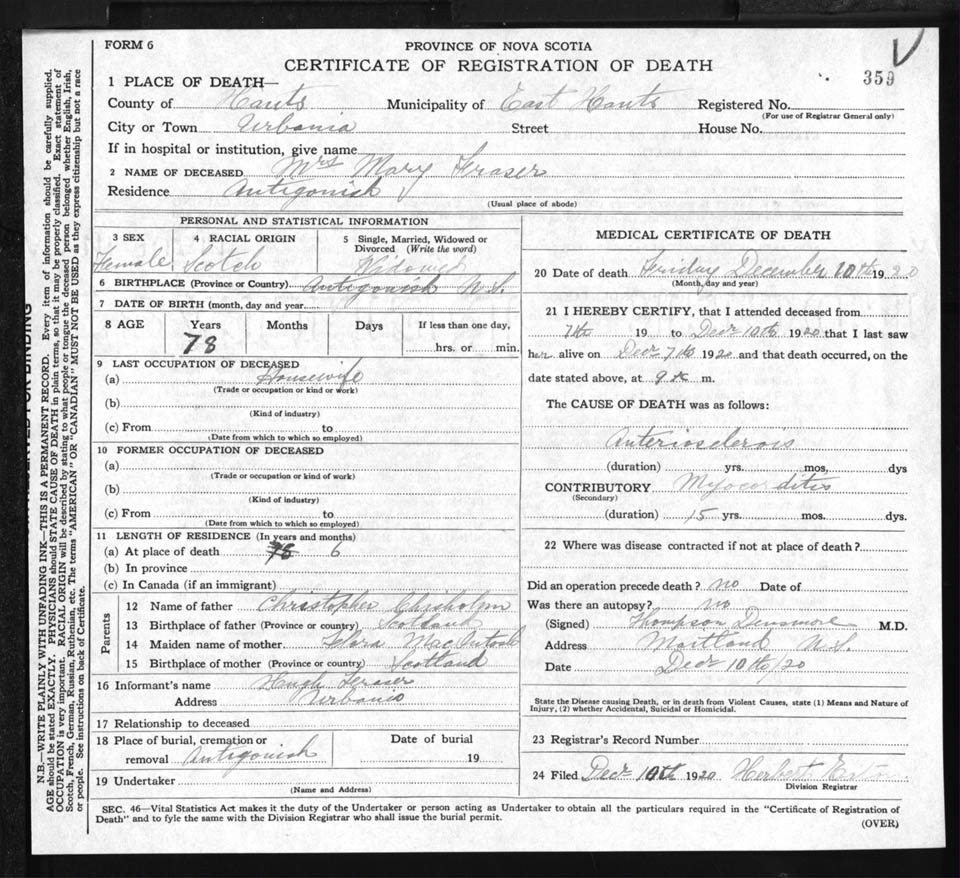 FORM 6
PROVINCE OF NOVA SCOTIA
CERTIFICATE OF REGISTRATION OF DEATH
359
1 PLACE OF DEATH—
County of Hants Municipality of East Hants Registered No.
(For use of Registrar General only)
City or Town Urbania Street House No.
If in hospital or institution, give name
2 NAME OF DECEASED Mrs Mary Fraser
Residence Antigonish
(Usual place of abode)
PERSONAL AND STATISTICAL INFORMATION
3 SEX 4 RACIAL ORIGIN 5 Single, Married, Widowed or Divorced (Write the word)
Female Scotch Widowed
6 BIRTHPLACE (Province or Country) Antigonish N.S.
7 DATE OF BIRTH (month, day and year
8 AGE Years Months Days If less than one day,
78 hrs. or min.
9 LAST OCCUPATION OF DECEASED
(a) Housewife
(Trade or occupation or kind or work)
(b)
(Kind of industry)
(c) From to
(Date from which to which so employed)
10 FORMER OCCUPATION OF DECEASED
(a)
(Trade or occupation or kind of work)
(b)
(Kind of industry)
(c) From to
(Date from which to which so employed)
11 LENGTH OF RESIDENCE (In years and months)
(a) At place of death 78 6
(b) In province
(c) In Canada (if an immigrant)
Parents
12 Name of father Christopher Chisholm
13 Birthplace of father (Province or country) Scotland
14 Maiden name of mother Flora MacIntosh
15 Birthplace of mother (Province or country) Scotland
16 Informant's name Hugh Fraser
Address Urbania
17 Relationship to deceased
18 Place of burial, cremation or removal Antigonish
Date of burial
19
19 Undertaker
(Name and Address)
MEDICAL CERTIFICATE OF DEATH
20 Date of death Friday December 10th 1920
(Month, day and year)
21 I HEREBY CERTIFY, that I attended deceased from
7th 19 to Decr 10th 1920 that I last saw
her alive on Decr 7th 1920 and that death occurred, on the
date stated above, at 9 m.
The CAUSE OF DEATH was as follows:
Anteriosclerois
(duration) yrs. mos, dys
CONTRIBUTORY Myocorditis
(Secondary)
(duration) 15 yrs. mos. dys.
22 Where was disease contracted if not at place of death?
Did an operation precede death? no Date of
Was there an autopsy? no
(Signed) Thompson Densmore M.D.
Address Maitland N.S.
Date Decr 10th/20
State the Disease causing Death, or in death from Violent Causes, state (1) Means and Nature of
Injury, (2) whether Accidental, Suicidal or Homicidal.
23 Registrar's Record Number
24 Filed Decr 10th 1920 Herbert
Division Registrar
SEC. 46—Vital Statistics Act makes it the duty of the Undertaker or person acting as Undertaker to obtain all the particulars required in the "Certificate of Registration of
Death" and to fyle the same with the Division Registrar who shall issue the burial permit.
(OVER)
N.B.—WRITE PLAINLY WITH UNFADING INK—THIS IS A PERMANENT RECORD. Every item of information should be carefully supplied.
AGE should be stated EXACTLY. PHYSICIANS should STATE CAUSE OF DEATH in plain terms, so that it may be properly classified. Exact statement of
OCCUPATION is very important. RACIAL ORIGIN will be described by stating to what people or tongue the deceased person belonged whether English, Irish,
Scotch, French, German, Russian, Ruthenian, etc. The terms "AMERICAN" OR "CANADIAN" MUST NOT BE USED as they express citizenship but not a race
or people. See instructions on back of Certificate.
FOR BINDING